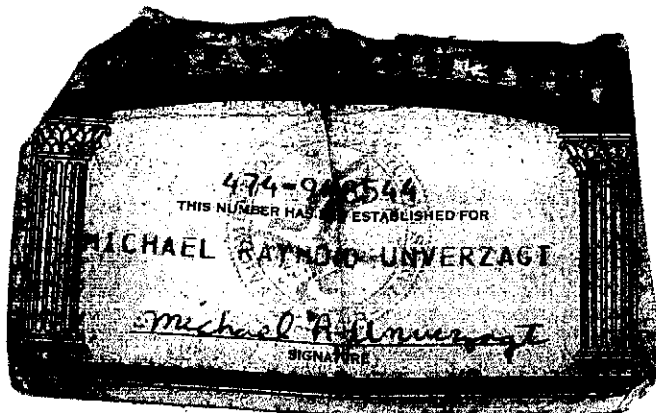 THIS NUMBER HAS ESTABLISHED FOR
MICHAEL RAYMOND UNVERZAGT
Michael R. Unverzagt
SIGNATURE